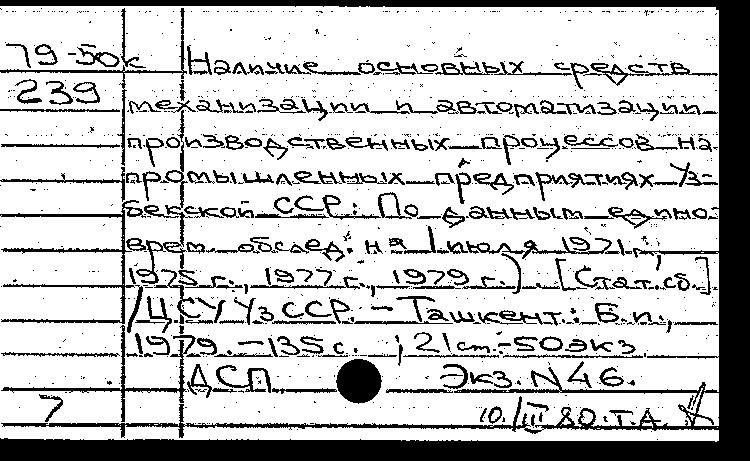 79-50к Наличие основных средств
239 механизации и автоматизации
производственных процессов на
промышленных предприятиях Уз-
бекской ССР: По данным едино-
врем. обслед. на 1 июля 1971 г.,
1975 г., 1977 г., 1979 г.). [Стат. сб.]
/ЦСУ УзССР. - Ташкент.: Б.и.,
1979. - 135 с. ; 21 cm. - 50 экз.
ДСП Экз. N 46.
7 10./III 80. Т.А.